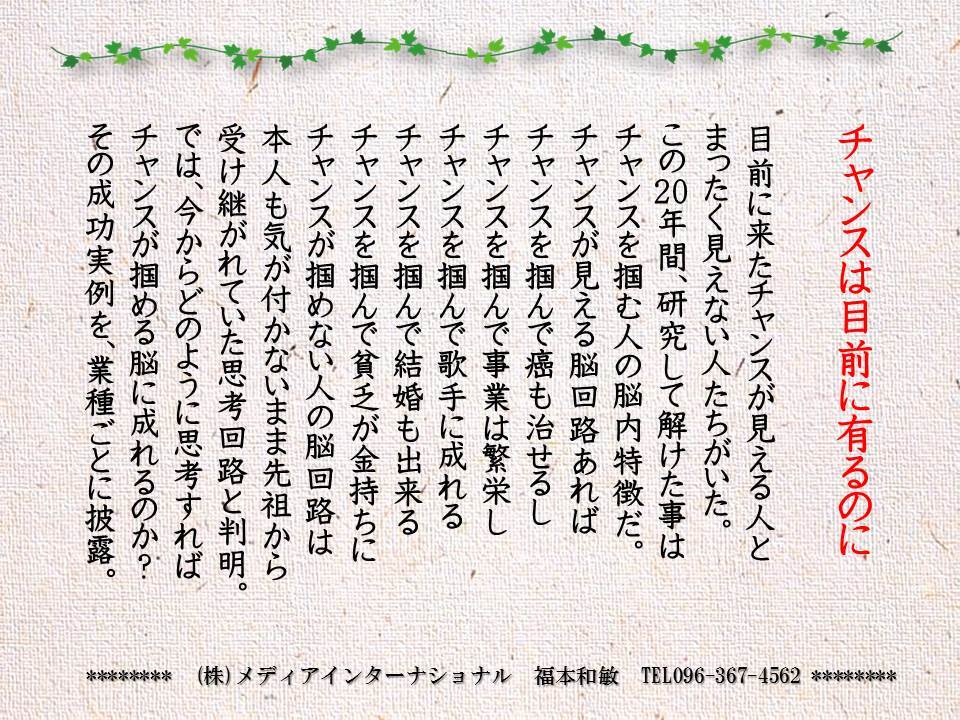 チャンスは目前に有るのに
目前に来たチャンスが見える人と
まったく見えない人たちがいた。
この20年間、研究して解けた事は
チャンスを掴む人の脳内特徴だ。
チャンスが見える脳回路あれば
チャンスを掴んで癌も治せるし
チャンスを掴んで事業は繁栄し
チャンスを掴んで歌手に成れる
チャンスを掴んで結婚も出来る
チャンスを掴んで貧乏が金持ちに
チャンスが掴めない人の脳回路は
本人も気が付かないまま先祖から
受け継がれていた思考回路と判明。
では、今からどのように思考すれば
チャンスが掴める脳に成れるのか?
その成功実例を、業種ごとに披露。
******** (株)メディアインターナショナル 福本和敏 TEL096-367-4562 ********